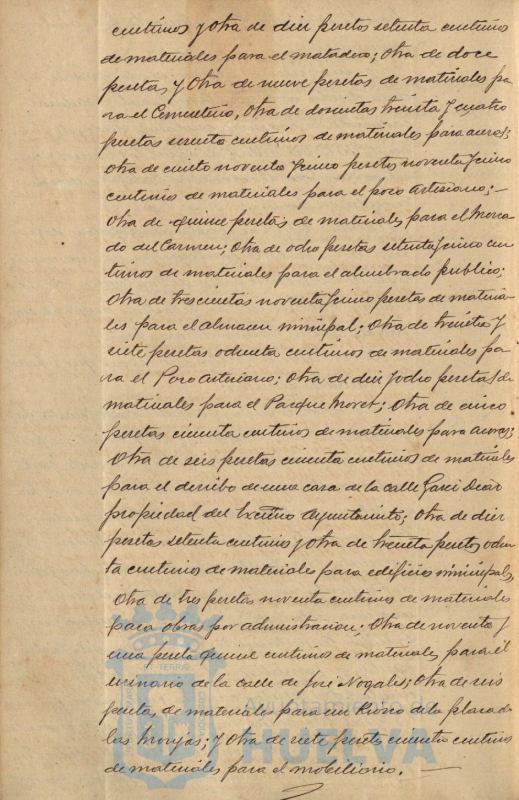 centimos y otra de diez pesetas setenta centimos
de materiales para el matadero; otra de doce
pesetas y otra de nueve pesetas de materiales pa
ra el Cementerio, otra de doscientas treinta y cuatro
pesetas sesenta centimos de materiales para aceras;
otra de ciento noventa y cinco pesetas noventa y cinco
centimos de materiales para el pozo Artesiano;
otra de quince pesetas de materiales para el Merca
do del Carmen; otra de ocho pesetas setenta y cinco cen
timos de materiales para el alumbrado publico;
otra de trescientas noventa y cinco pesetas de materia
les para el almacen municipal; otra de treinta y
siete pesetas ochenta centimos de materiales pa
ra el Pozo artesiano; otra de diez y ocho pesetas de
materiales para el Parque Moret; otra de cinco
pesetas cincuenta centimos de materiales para aceras;
otra de seis pesetas cincuenta centimos de materiales
para el derribo de una casa de la calle Garci Diaz
propiedad del Excmo Ayuntamiento; otra de diez
pesetas setenta centimos y otra de treinta pesetas ochen
ta centimos de materiales para edificios municipales,
otra de tres pesetas noventa centimos de materiales
para obras por administracion; otra de noventa y
una peseta quince centimos de materiales para el
urinario de la calle de José Nogales; otra de seis
pesetas de materiales para un Kiosco de la plaza de
las Monjas; y otra de siete pesetas cincuenta centimos
de materiales para el mobiliario.
Ayuntamiento
HUELVA